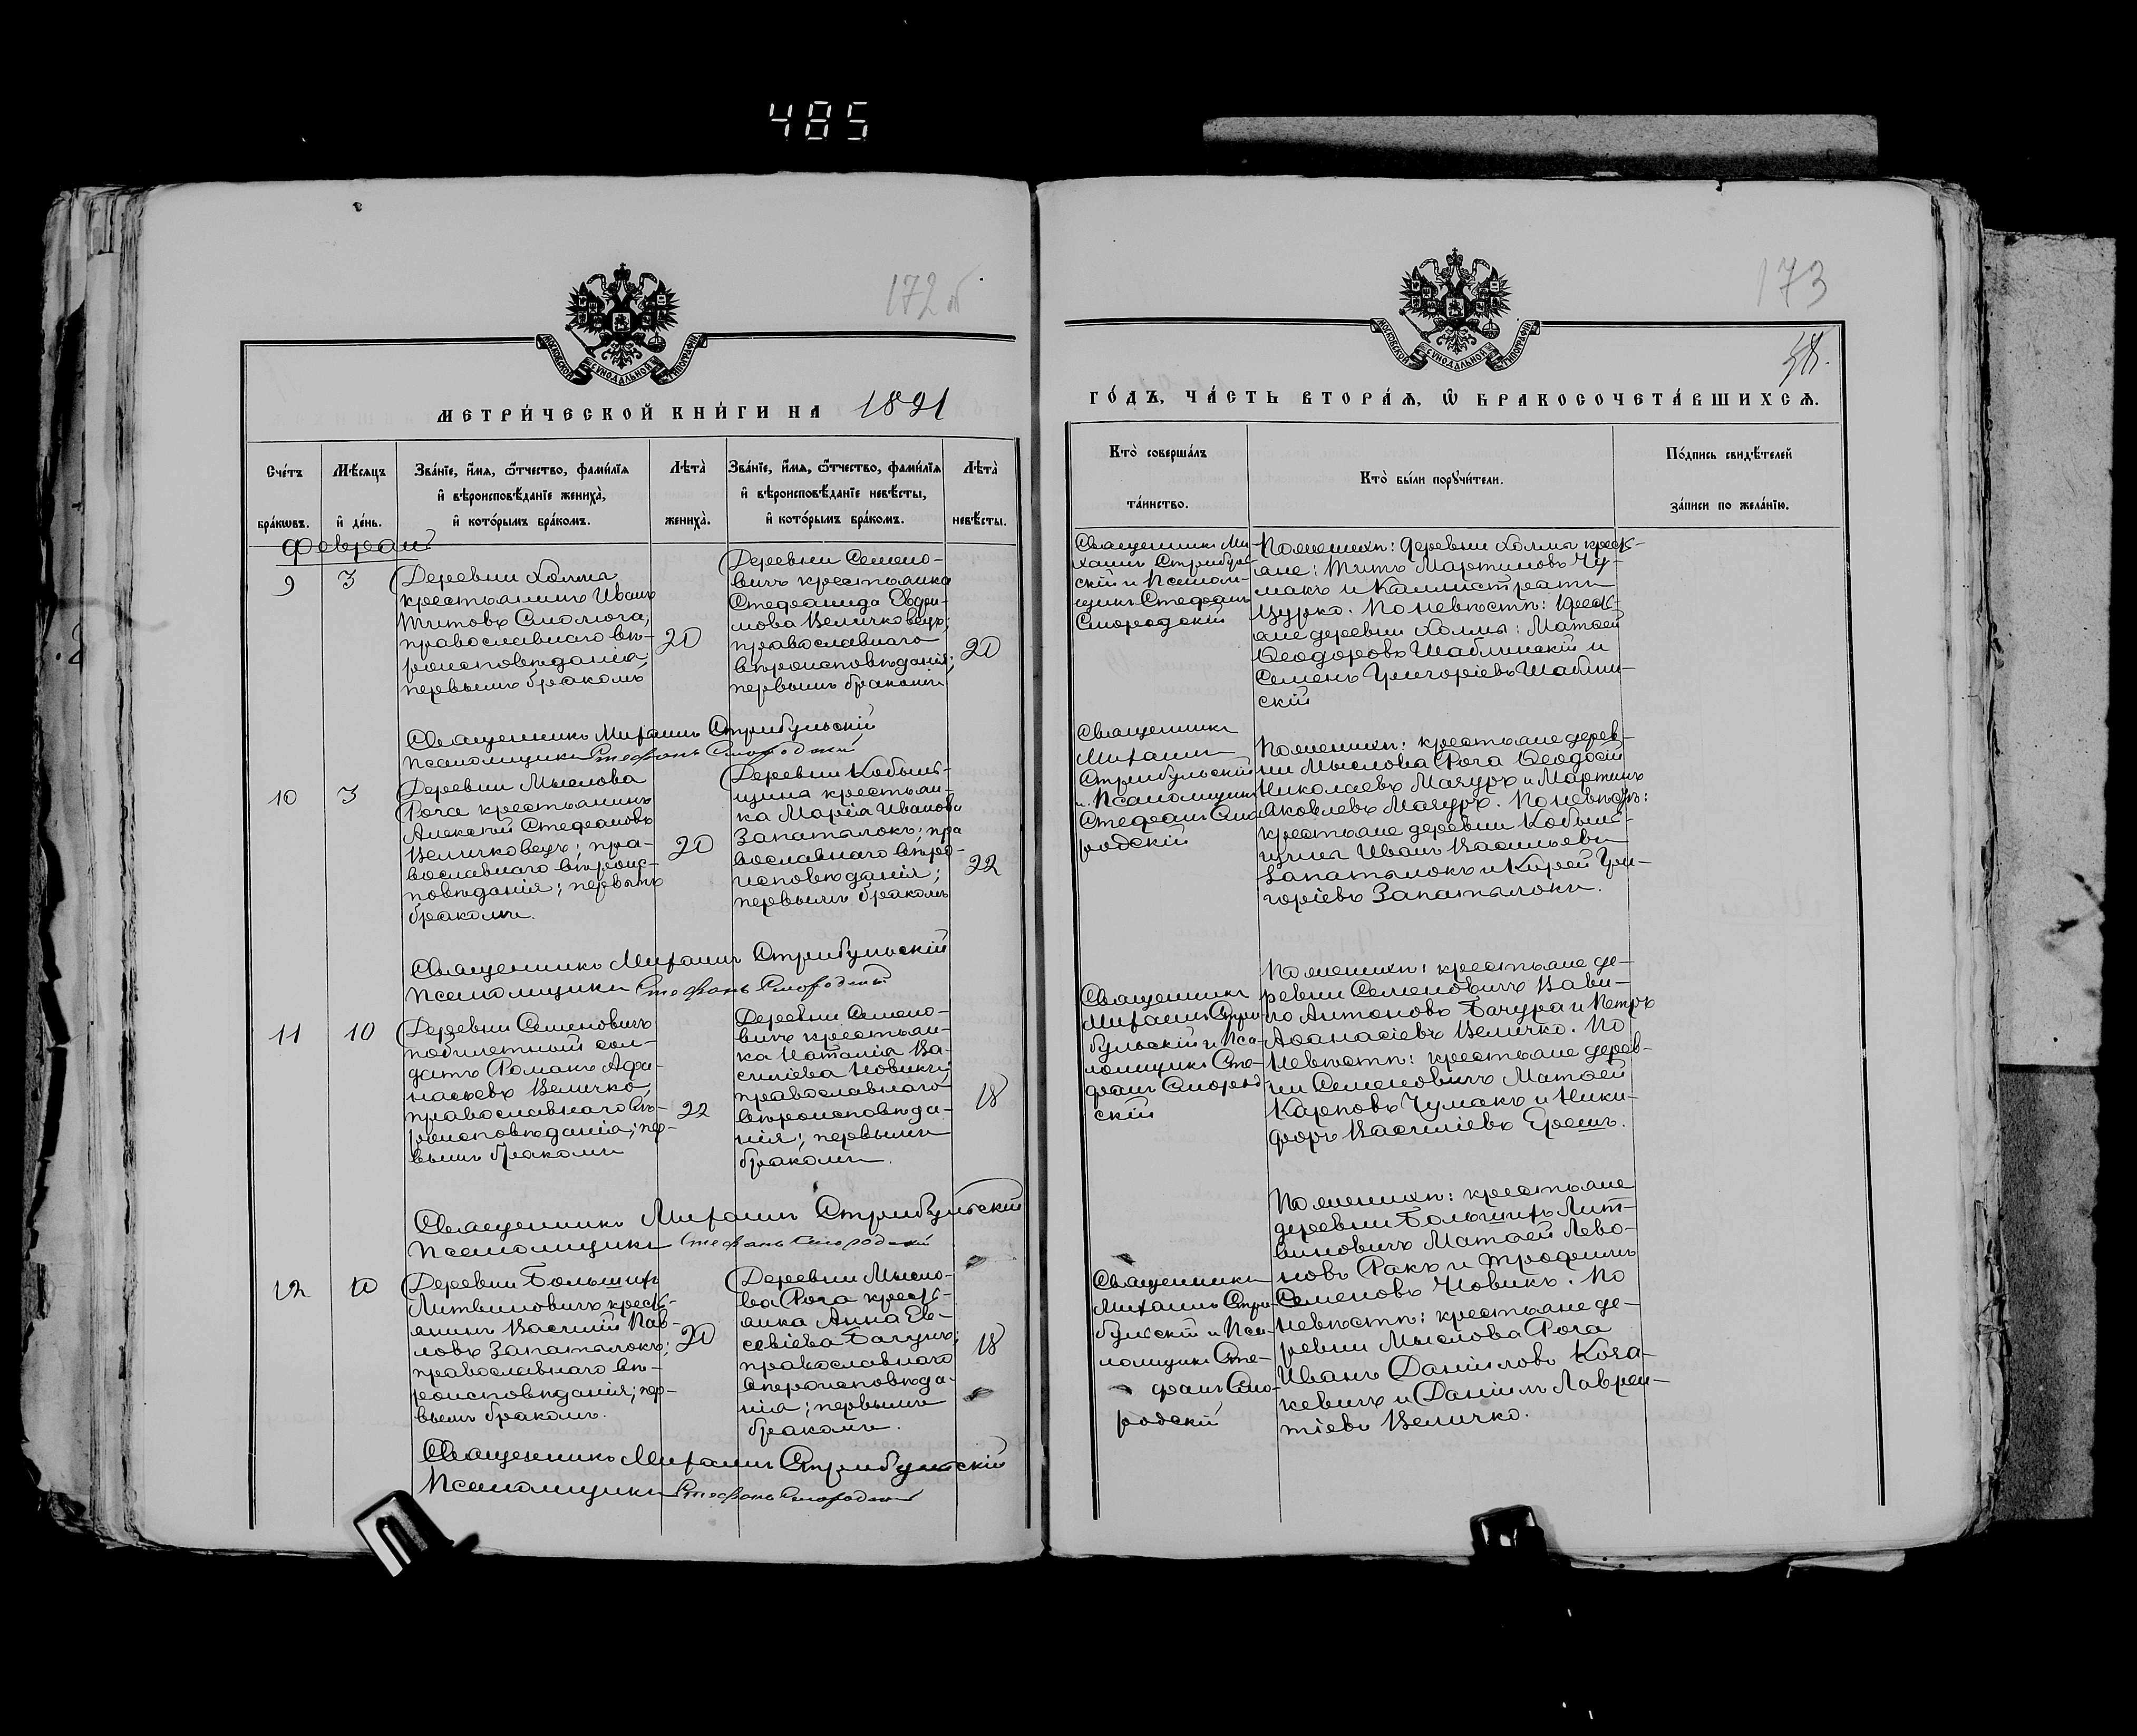 485
172 об
173
МОСКОВСКОЙ СѴНОДАЛЬНОЙ ТИПОГРАФІИ
МОСКОВСКОЙ СѴНОДАЛЬНОЙ ТИПОГРАФІИ
МЕТРИ́ЧЕСКОЙ КНИ́ГИ НА 1891
ГО́ДЪ, ЧА́СТЬ ВТОРА́Ѧ, Ѽ БРАКОСОЧЕТА́ВШИХСѦ.
Сче́тъ
бра́кѡвъ.
Мѣ́сѧцъ
и҆ де́нь.
Зва́нїе, и҆́мѧ, ѻ҆́тчество, фами́лїѧ
и҆ вѣроисповѣ́данїе жениха̀,
и҆ кото́рымъ бра́комъ.
Лѣта̀
жениха̀.
Зва́нїе, и҆́мѧ, ѻ҆́тчество, фами́лїѧ
и҆ вѣроисповѣ́данїе невѣ́сты,
и҆ кото́рымъ бра́комъ.
Лѣта̀
невѣ́сты.
Кто̀ соверша́лъ
та́инство.
Кто̀ бы́ли порꙋчи́тели.
По́дпись свидѣ́телей
за́писи по жела́нїю.
Февраль
9
3
Деревни Холма
крестьянинъ Иванъ
Титовъ Смолюга,
православнаго вѣ-
роисповѣданія;
первымъ бракомъ
20
Деревни Семено-
вичъ крестьянка
Стефанида Евфи-
мова Величковецъ;
православнаго
вѣроисповѣданія;
первымъ бракомъ
20
Священникъ Ми-
хаилъ Стрибуль-
скій и Псалом-
щикъ Стефанъ
Смородскій
По женихѣ: деревни Холмы крестья-
ане: Титъ Мартиновъ Чу-
макъ и Каллистратъ
Цурко. По невѣстѣ: крестья-
ане деревни Холмы: Матѳей
Ѳеодоровъ Шаблинскій и
Семенъ Григоріевъ Шаблин-
скій
Священникъ Михаилъ Стрибульскій
Псаломщикъ Стефанъ Смородскій
10
3
Деревни Мыслова
Рога крестьянинъ
Алексѣй Стефановъ
Величковецъ; пра-
вославнаго вѣроис-
повѣданія; первымъ
бракомъ.
20
Деревни Кобыль-
щина крестьян-
ка Марія Иванова
Запатылокъ; пра
вославнаго вѣро-
исповѣданія;
первымъ бракомъ
22
Священникъ
Михаилъ
Стрибульскій
и Псаломщикъ
Стефанъ Смо
родскій
По женихѣ: крестьяне дерев-
ни Мыслова Рога Ѳеодосій
Николаевъ Мачуръ и Мартинъ
Яковлевъ Мачуръ. По невѣстѣ:
крестьяне деревни Кобыль-
щина Иванъ Васильевъ
Запатылокъ и Карпей Гри-
горіевъ Запатылокъ.
Священникъ Михаилъ Стрибульскій
Псаломщикъ Стефанъ Смородскій
11
10
Деревни Семеновичъ
побилетный сол-
датъ Романъ Афа-
насьевъ Величко
православнаго вѣ-
роисповѣданія; пер-
вымъ бракомъ
22
Деревни Семено-
вичъ крестьян-
ка Наталія Ва-
силіева Новикъ;
православнаго
вѣроисповѣда-
нія; первымъ
бракомъ.
18
Священникъ
Михаилъ Стри-
бульскій и Пса-
ломщикъ Сте-
фанъ Смород
скій
По женихѣ: крестьяне де-
ревни Семеновичъ Вави-
ло Антоновъ Бачура и Петръ
Аѳанасіевъ Величко. По
невѣстѣ: крестьяне дерев-
ни Семеновичъ Матѳей
Карповъ Чумакъ и Ники-
форъ Василіевъ Ерешъ.
Священникъ Михаилъ Стрибульскій
Псаломщикъ Стефанъ Смородскій
12
10
Деревни Большихъ
Литвиновичъ кресть-
янинъ Василій Пав-
ловъ Запатылокъ;
православнаго вѣ-
роисповѣданія; пер-
вымъ бракомъ.
20
Деревни Мысло-
ва Рога кресть-
янка Анна Ев-
севіева Бачура;
православнаго
вѣроисповѣда-
нія; первымъ
бракомъ.
18
Священникъ
Михаилъ Стри-
бульскій и Пса-
ломщикъ Сте-
фанъ Смо-
родскій
По женихѣ: крестьяне
деревни Большихъ Лит-
виновичъ Матѳей Лево-
новъ Ракъ и Трофимъ
Семеновъ Новикъ. По
невѣстѣ: крестьяне де-
ревни Мыслова Рога
Иванъ Даніиловъ Коза-
кевичъ и Даніилъ Лаврен-
тіевъ Величко.
Священникъ Михаилъ Стрибульскій
Псаломщикъ Стефанъ Смородскій